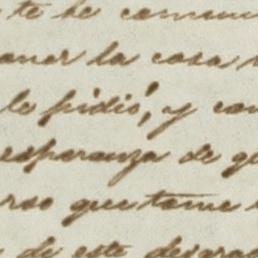 te he comun
oner la casa
le pidió, y con
esperanza de qu
rso que tome
de este desgrac